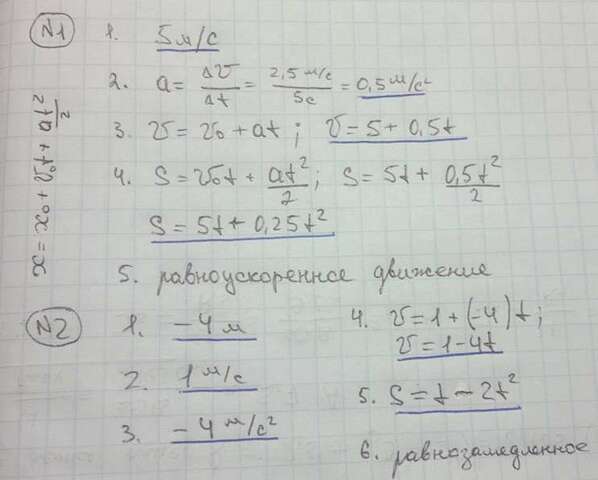 N1 1. 5 м/с
2. a = Δv/Δt = 2,5 м/с / 5с = 0,5 м/с²
3. v = v₀ + at ; v = 5 + 0,5t
4. S = v₀t + at²/2 ; S = 5t + 0,5t²/2
S = 5t + 0,25t²
5. равноускоренное движение
x = x₀ + v₀t + at²/2
N2 1. -4 м
2. 1 м/с
3. -4 м/с²
4. v = 1 + (-4)t ;
v = 1 - 4t
5. S = t - 2t²
6. равнозамедленное